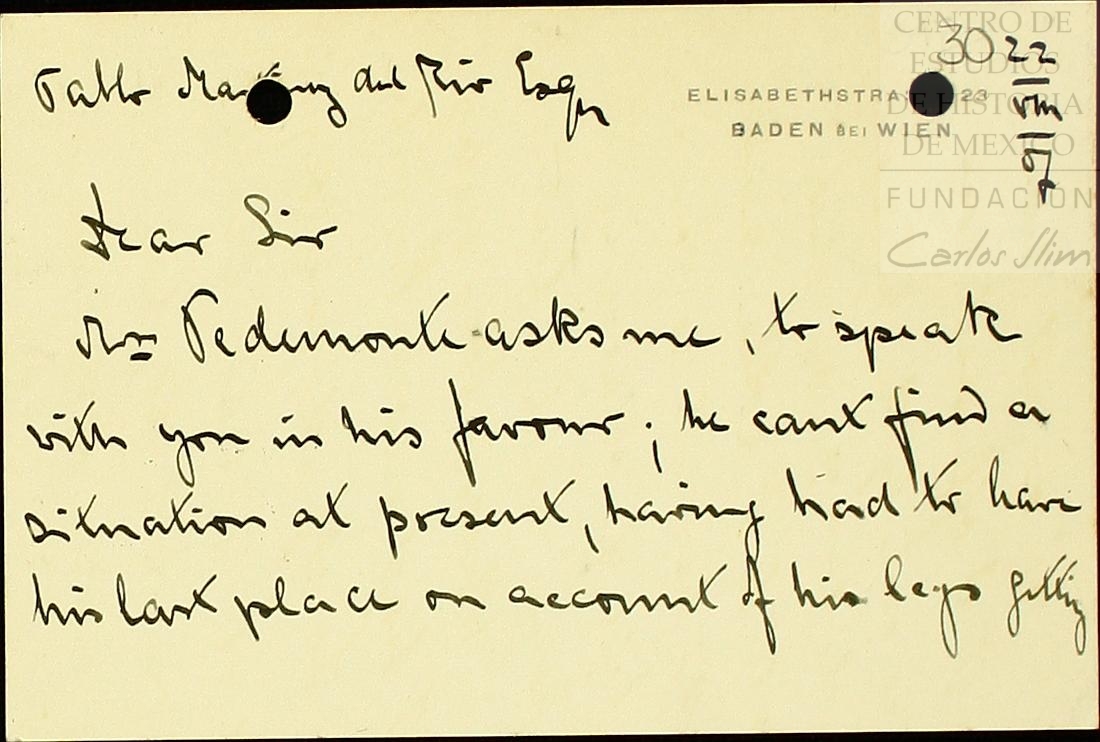 CENTRO DE
ESTUDIOS
DE HISTORIA
DE MEXICO
FUNDACIÓN
Carlos Slim
30 22
VIII
07
Pablo Martinez del Rio Esqr
ELISABETHSTRA 23
BADEN BEI WIEN
Dear Sir
Mr Pedemonte asks me, to speak
with you in his favour; he cant find a
situation at present, having had to have
his last place on account of his legs getting